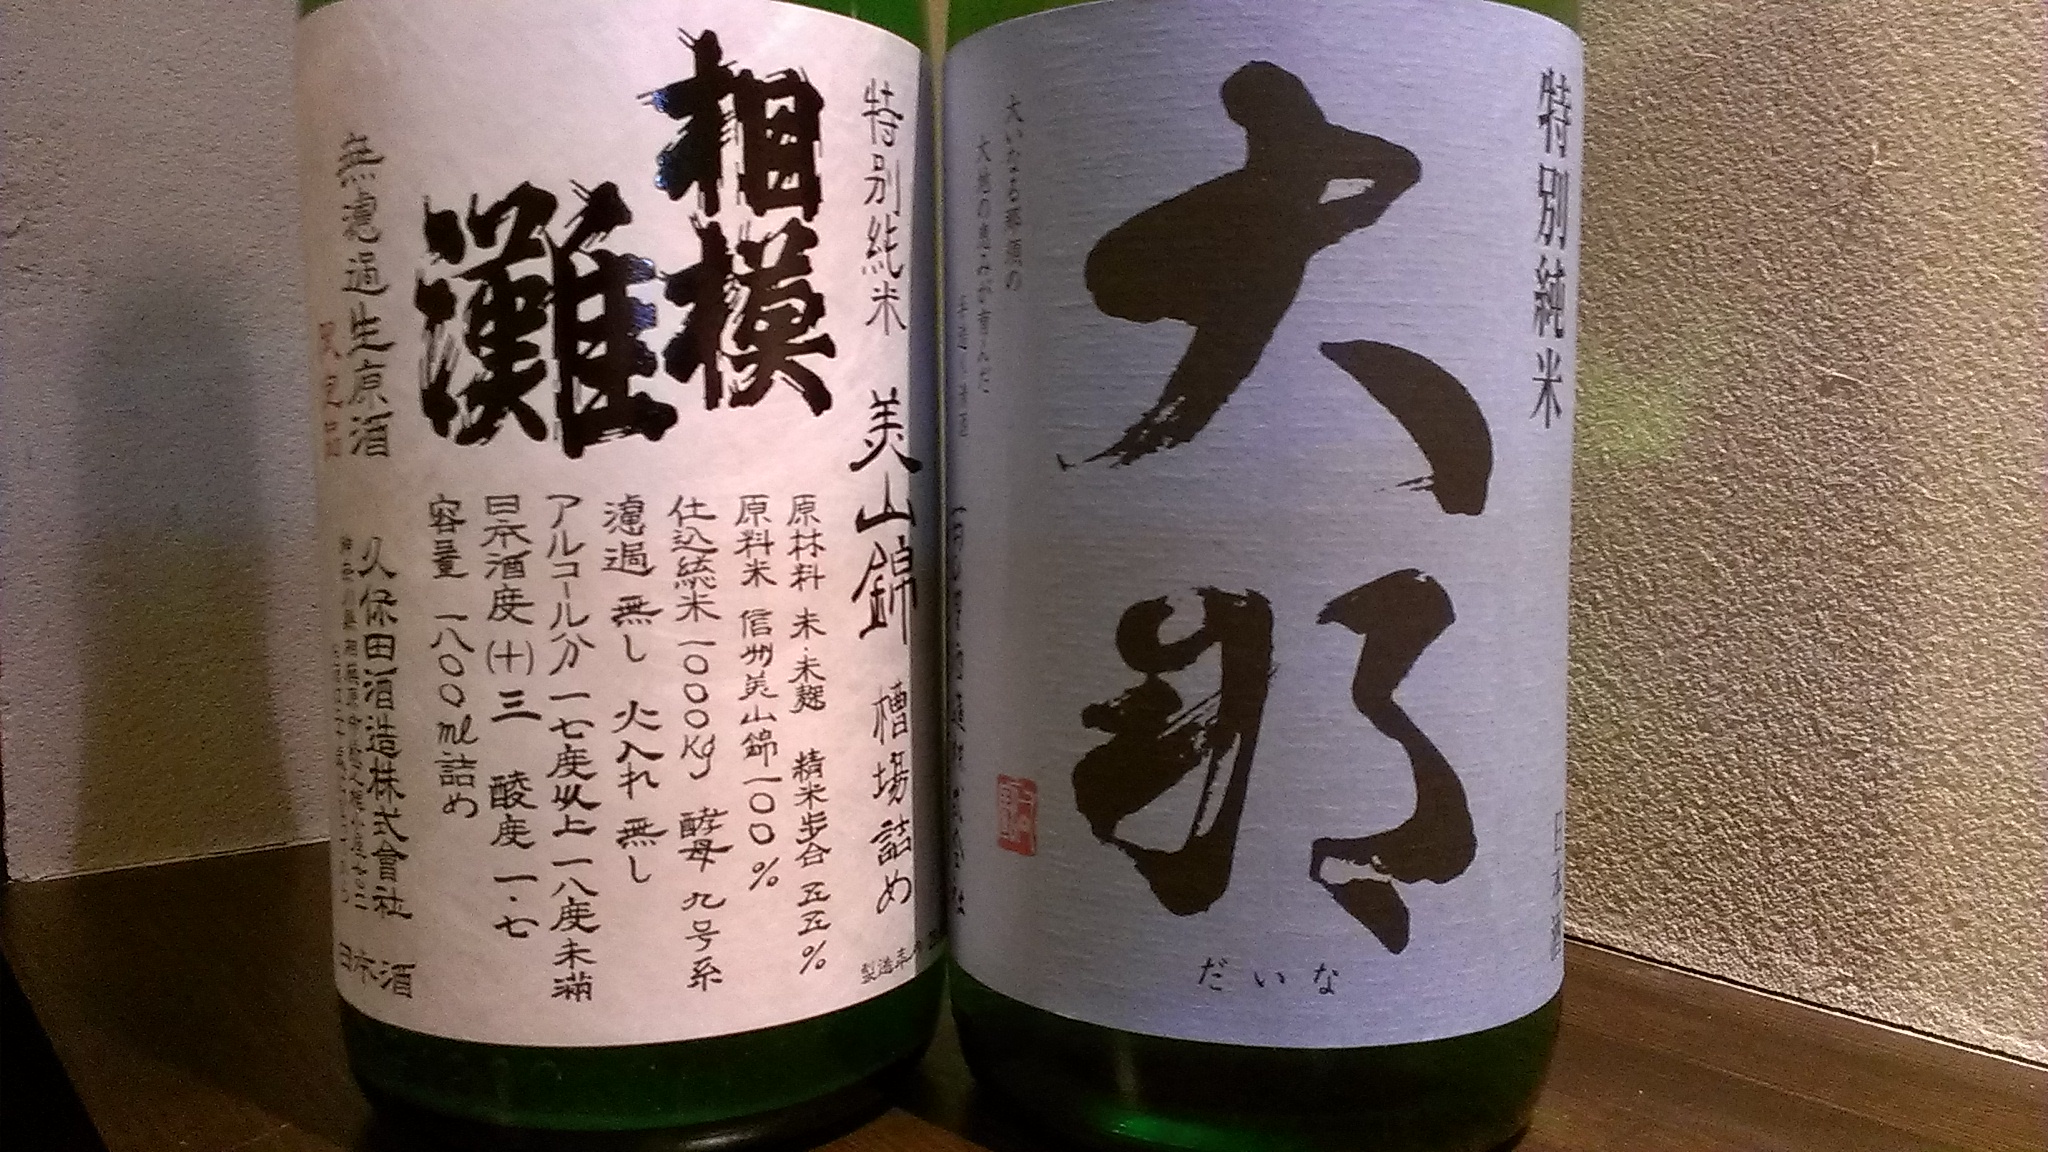 特別純米 美山錦 槽場詰め
相模
灘
原材料 米・米麹 精米歩合 五五%
原料米 信州美山錦一〇〇%
仕込総米 一〇〇〇Kg 酵母 九号系
濾過 無し 火入れ 無し
アルコール分 一七度以上一八度未満
日本酒度(十)三 酸度 一・七
容量 一八〇〇ml詰め
無濾過生原酒
限定品
久保田酒造株式會社
日本酒
製造年月
特別純米
日本酒
大那
だいな
大いなる那須の
大地の恵みが育んだ